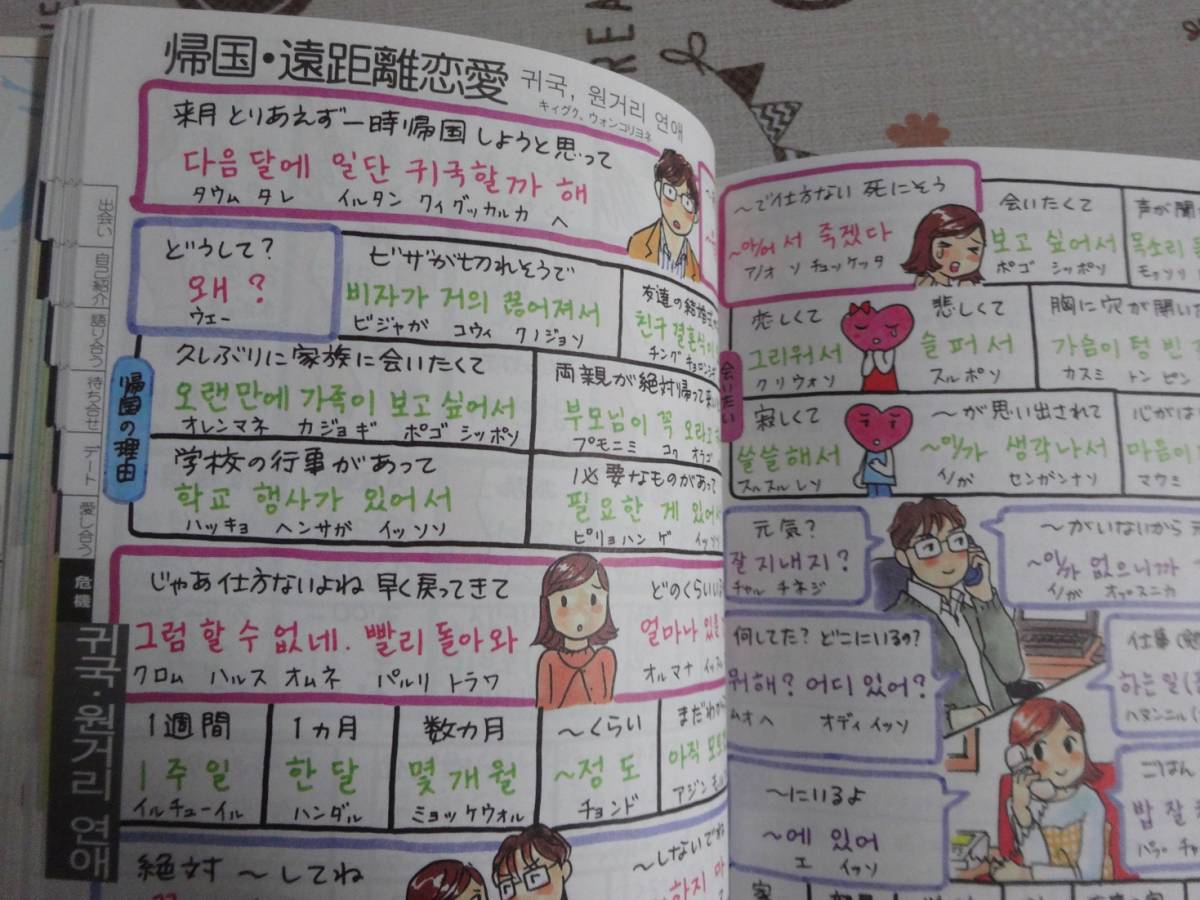 帰国・遠距離恋愛
귀국, 원거리 연애
キィグク、ウォンゴリヨネ
来月 とりあえず一時帰国 しようと思って
다음 달에 일단 귀국할까 해
タウム タレ イルタン クィグッカルカ ヘ
どうして?
왜?
ウェー
ビザが切れそうで
비자가 거의 끊어져서
ビジャガ コウィ クノジョソ
友達の結婚式
친구 결혼식이
チング キョロンシギ
帰国の理由
久しぶりに家族に会いたくて
오랜만에 가족이 보고 싶어서
オレンマネ カジョギ ポゴ シッポソ
両親が絶対帰って来い
부모님이 꼭 오라고
プモニミ コク オラゴ
学校の行事があって
학교 행사가 있어서
ハッキョ ヘンサガ イッソソ
必要なものがあって
필요한 게 있어서
ピリョハン ゲ イッソソ
じゃあ仕方ないよね 早く戻ってきて
그럼 할 수 없네. 빨리 돌아와
クロム ハルス オムネ パルリ トラワ
どのくらいいる
얼마나 있을
オルマナ
1週間
1주일
イルチューイル
1ヵ月
한 달
ハンダル
数ヵ月
몇 개월
ミョッケウォル
~くらい
~정도
チョンド
まだわから
아직
アジン
絶対 ~してね
~しないでね
하지 마
出会い
自己紹介
語り合う
待ち合せ
デート
愛し合う
危機
귀국·원거리 연애
~で仕方ない 死にそう
~아/어서 죽겠다
ア/オ ソ チュッケッタ
会いたくて
보고 싶어서
ポゴ シッポソ
声が聞
목소리
モクソリ
会いたい
恋しくて
그리워서
クリウォソ
悲しくて
슬퍼서
スルポソ
胸に穴が開いた
가슴이 텅 빈
カスミ トン ピン
寂しくて
쓸쓸해서
スルスルレソ
~が思い出されて
~이/가 생각나서
イ/ガ センガンナソ
心がは
마음이
マウミ
元気?
잘 지내지?
チャル チネジ
~がいないから
~이/가 없으니까
イ/ガ オプスニカ
何してた? どこにいるの?
뭐해? 어디 있어?
ムオヘ オディ イッソ
仕事
하는 일
ハヌンニル
~にいるよ
~에 있어
エ イッソ
ごはん
밥 잘
パプ チャ